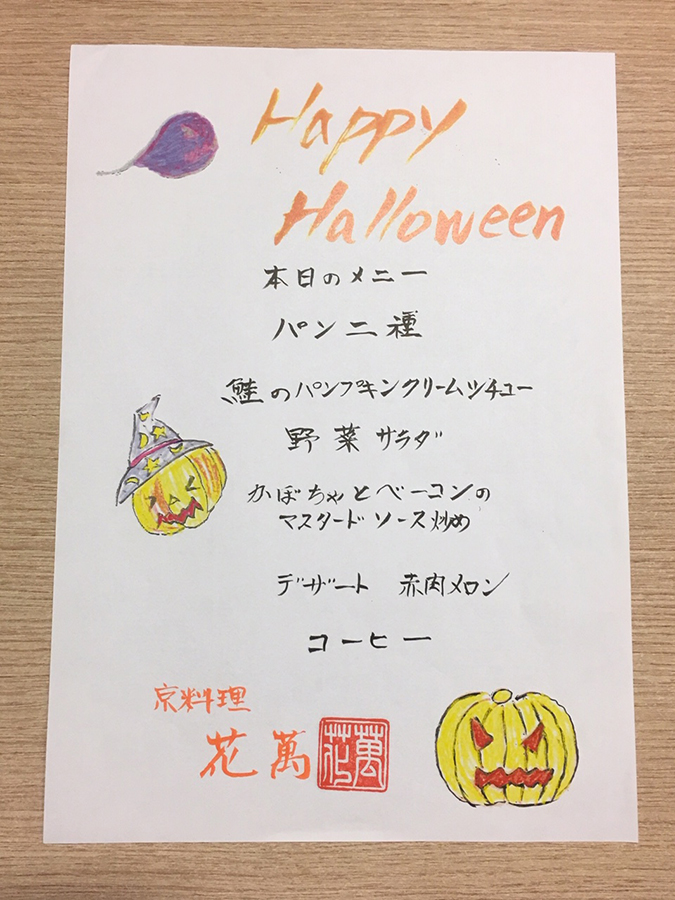 Happy
Halloween
本日のメニー
パン二種
鮭のパンプキンクリームシチュー
野菜サラダ
かぼちゃとベーコンの
マスタードソース炒め
デザート 赤肉メロン
コーヒー
京料理
花萬
花萬